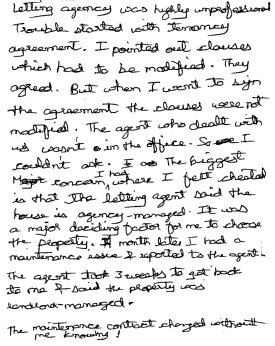 Letting agency was highly unprofessional
Trouble started with tenancy
agreement. I pointed out clauses
which had to be modified. They
agreed. But when I went to sign
the agreement the clauses were not
modified. The agent who dealt with
us wasnt in the office. So I
couldn't ask. The biggest
concern I had, where I felt cheated
is that the letting agent said the
house is agency-managed. It was
a major deciding factor for me to choose
the property. month later I had a
maintenance issue & reported to the agent.
The agent took 3 weeks to get back
to me & said the property was
landlord-managed.
The maintenance contract changed without
me knowing!